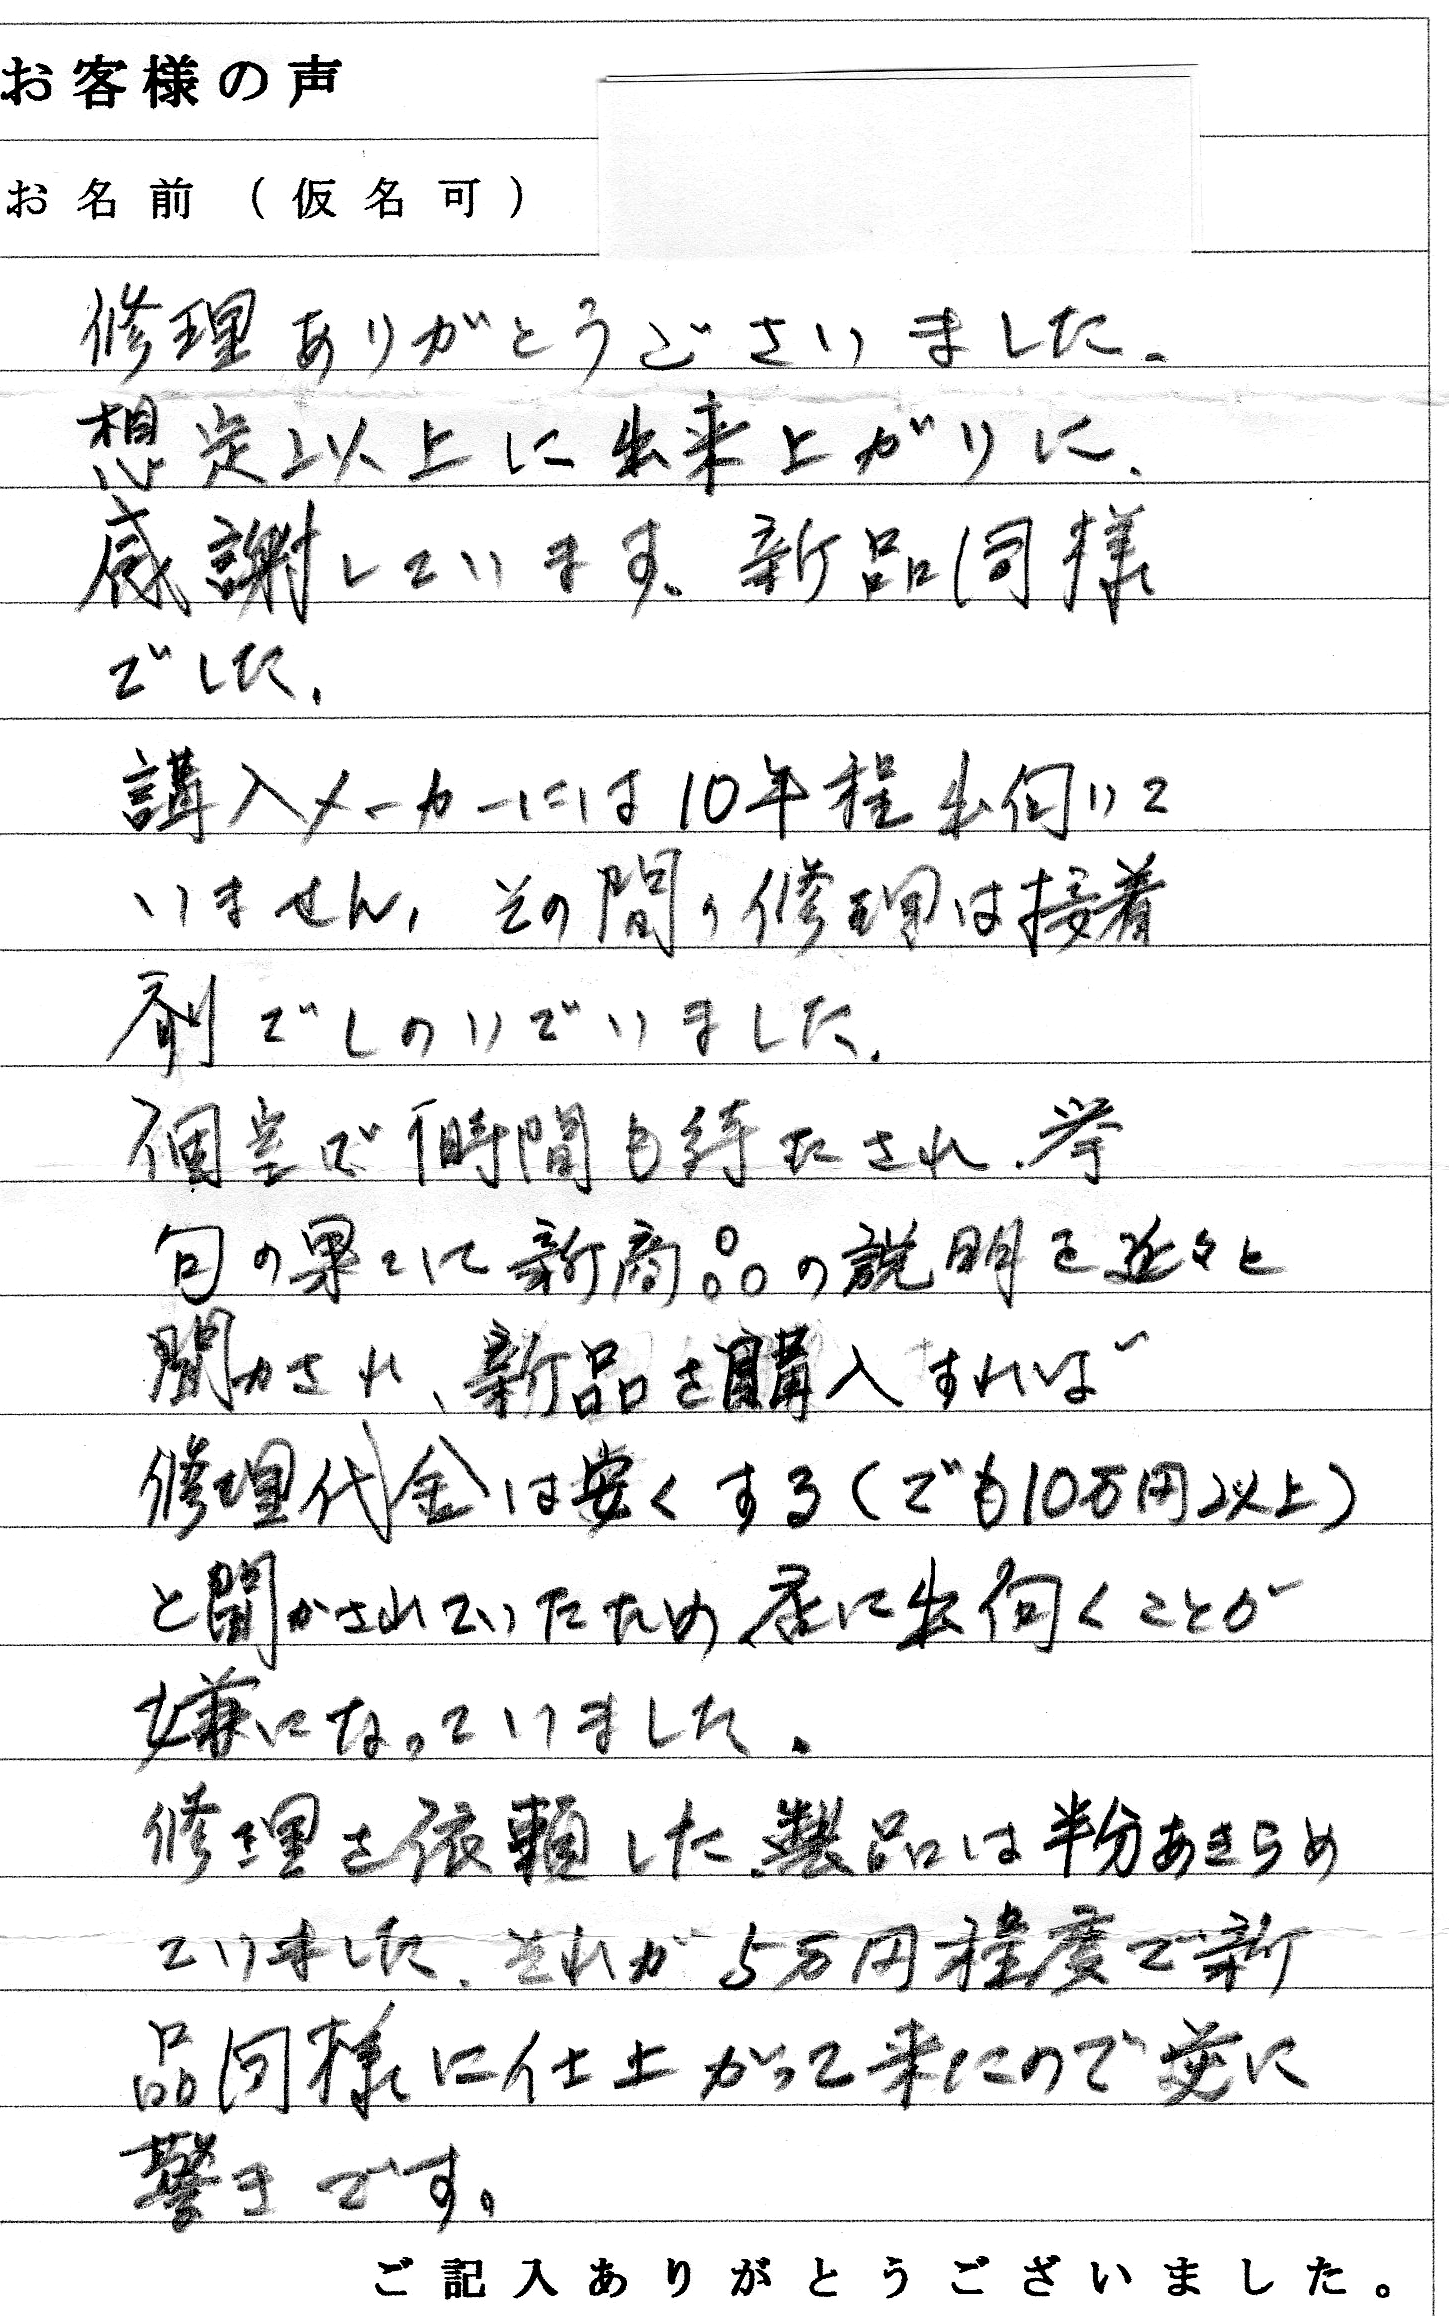 お客様の声
お名前（仮名可）
修理ありがとうございました。
想定以上に出来上がりに、
感謝しています。新品同様
でした。
講入メーカーには10年程出向いて
いません。その間の修理は接着
剤でしのいでいました。
個室で1時間も待たされ、挙
句の果てに新商品の説明を延々と
聞かされ、新品を購入すれば
修理代金は安くする（でも10万円以上）
と聞かされていたため店に出向くことが
嫌になっていました。
修理を依頼した製品は半分あきらめ
ていました。それが5万円程度で新
品同様に仕上がって来たので逆に
驚きです。
ご記入ありがとうございました。